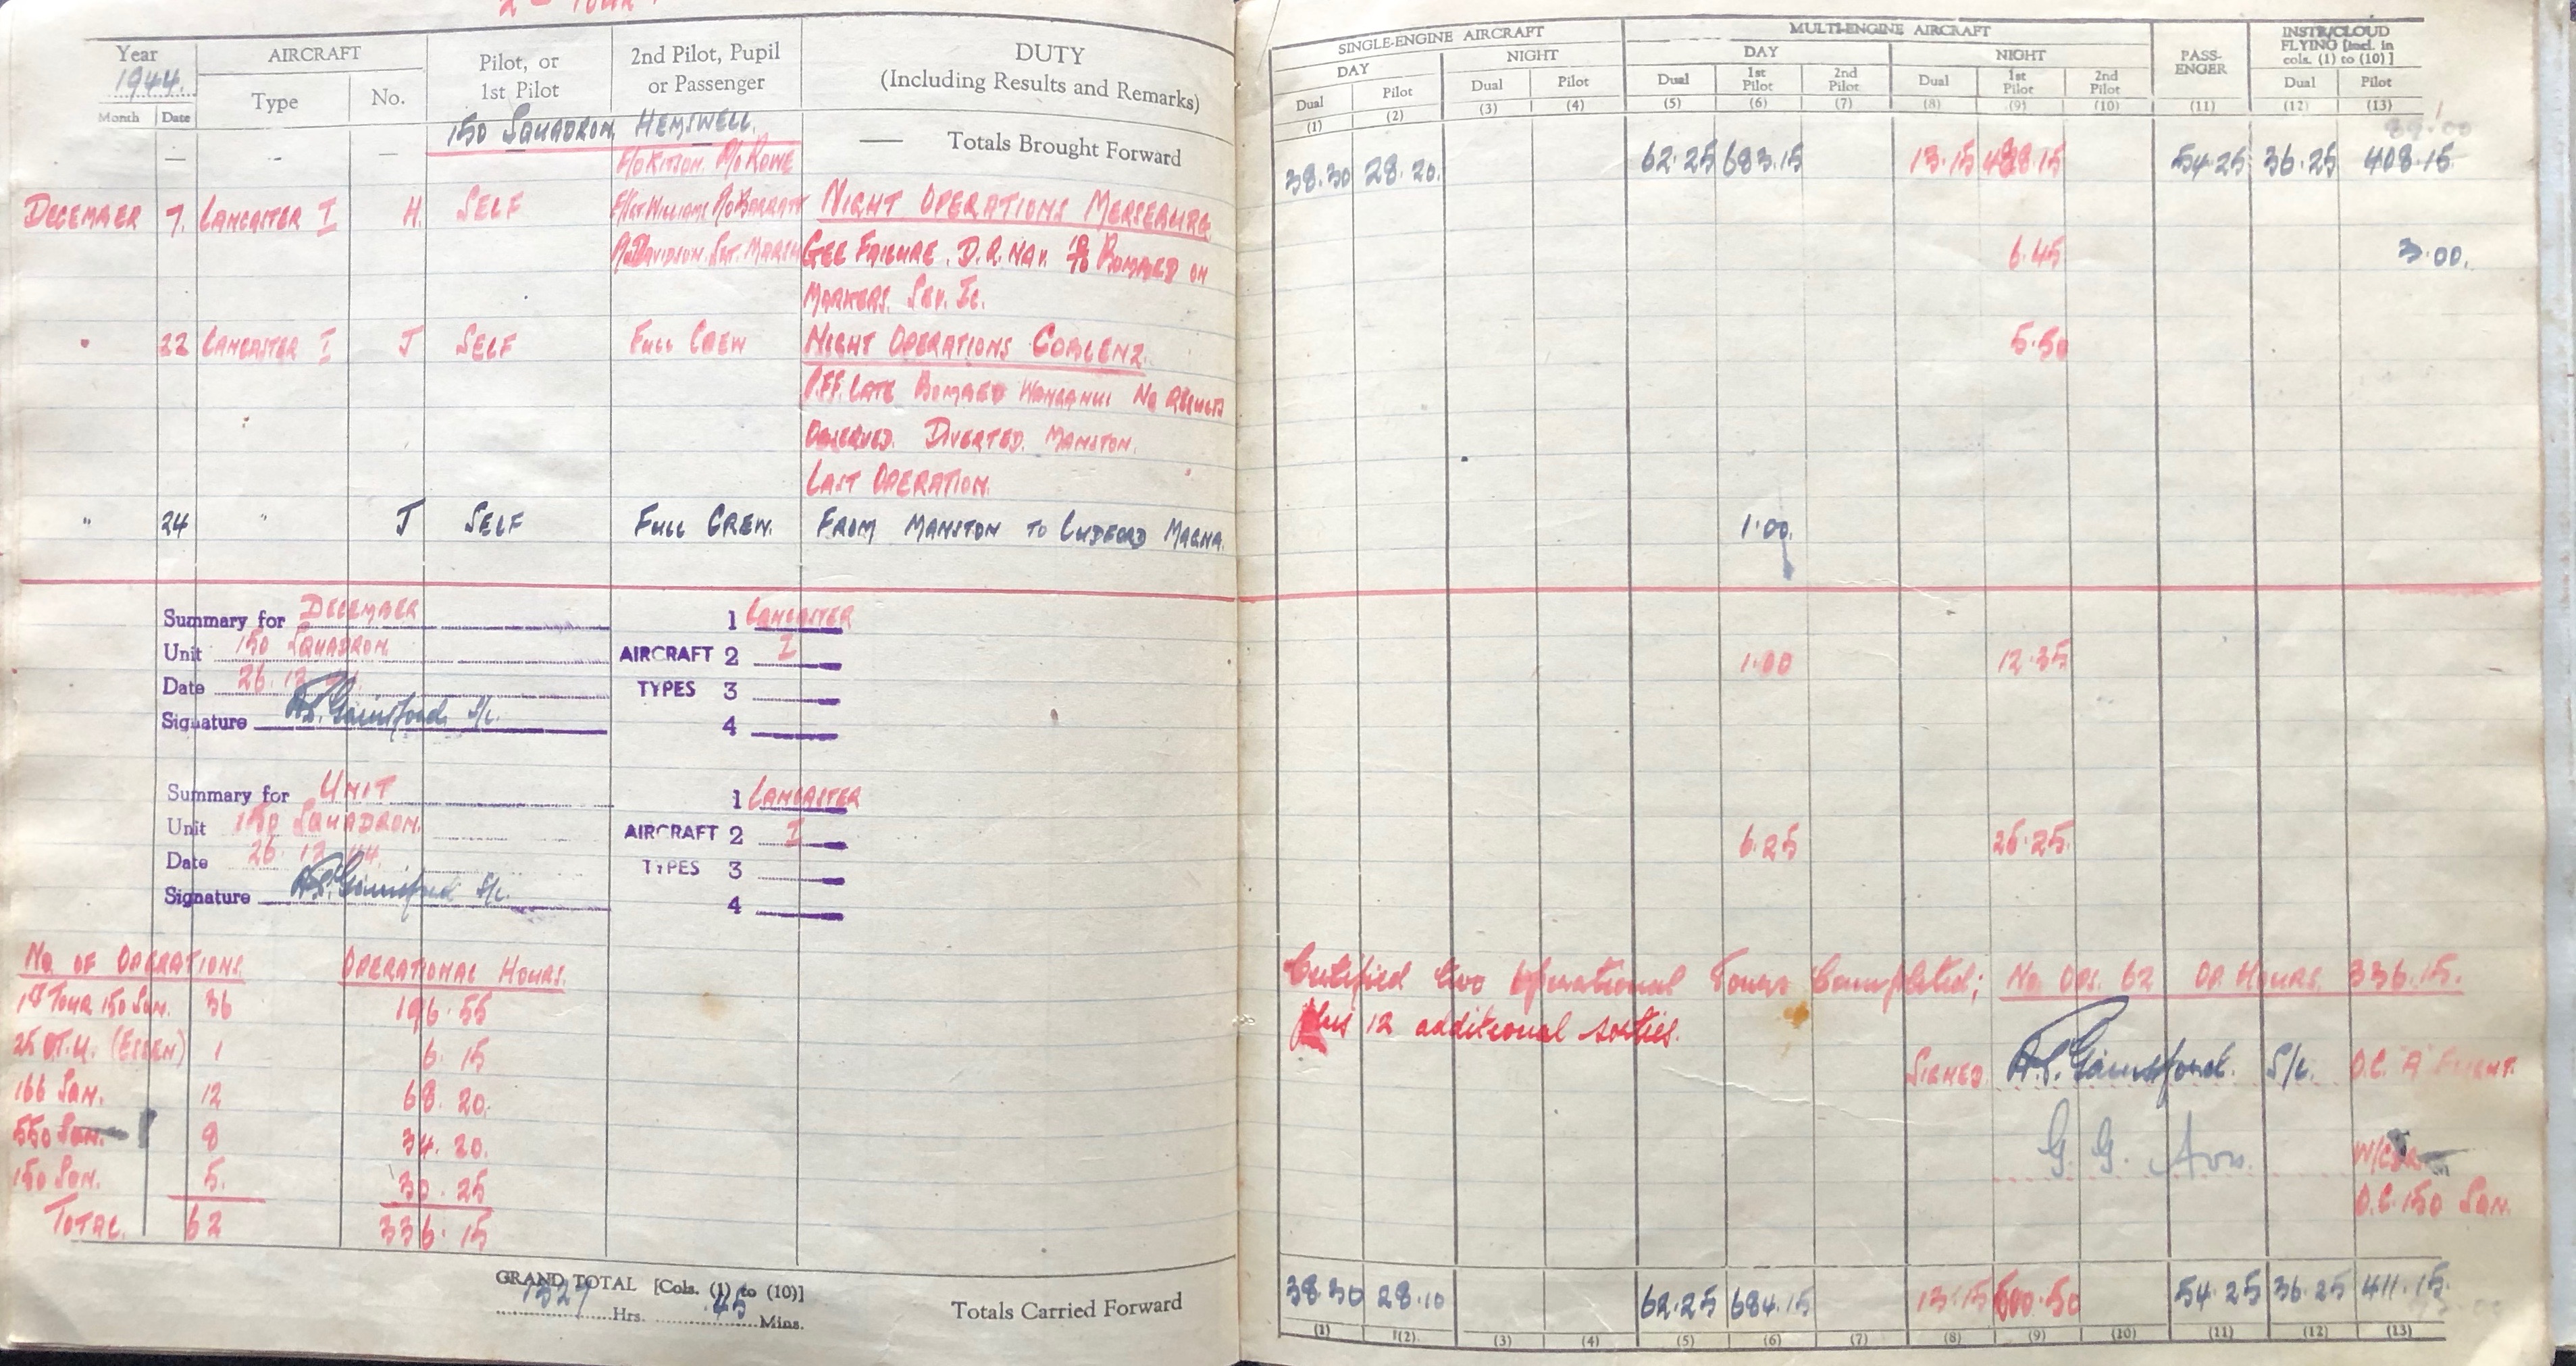 2nd Tour
Year 1944. AIRCRAFT Pilot, or 1st Pilot 2nd Pilot, Pupil or Passenger DUTY (Including Results and Remarks)
Month Date Type No.
150 SQUADRON, HEMSWELL.
— — — —— Totals Brought Forward
F/O KITSON. P/O ROWE
DECEMBER 7. LANCASTER I H. SELF F/SGT WILLIAMS P/O BARRATT NIGHT OPERATIONS MERSEBURG
DAVIDSON. SGT. MARSH GEE FAILURE. D.R. NAV. BOMBED ON
MARKERS.
" 22 LANCASTER I J SELF FULL CREW NIGHT OPERATIONS COBLENZ.
P.F.F. LATE BOMBED WANGANUI NO RESULTS
OBSERVED. DIVERTED. MANSTON.
LAST OPERATION.
" 24 " J SELF FULL CREW. FROM MANSTON TO LUDFORD MAGNA.
Summary for DECEMBER 1 LANCASTER
Unit 150 SQUADRON. AIRCRAFT 2 I
Date 26.12.44. TYPES 3
Signature Gainsford S/L. 4
Summary for UNIT 1 LANCASTER
Unit 150 SQUADRON. AIRCRAFT 2 I
Date 26.12.44. TYPES 3
Signature Gainsford S/L. 4
NO OF OPERATIONS. OPERATIONAL HOURS.
1ST TOUR 150 SQN. 36 196.55
25 O.T.U. (ESSEN) 1 6.15
166 SQN. 12 68.20.
550 SQN. 8 34.20.
150 SQN. 5. 30.25
TOTAL. 62 336.15
GRAND TOTAL [Cols. (1) to (10)]
1327 Hrs. 45 Mins.
Totals Carried Forward
SINGLE-ENGINE AIRCRAFT MULTI-ENGINE AIRCRAFT PASS-ENGER INSTR/CLOUD FLYING [Incl. in cols. (1) to (10)]
DAY NIGHT DAY NIGHT
Dual Pilot Dual Pilot Dual 1st Pilot 2nd Pilot Dual 1st Pilot 2nd Pilot Dual Pilot
(1) (2) (3) (4) (5) (6) (7) (8) (9) (10) (11) (12) (13)
89.00
38.30 28.20. 62.25 683.15 13.15 488.15 54.25 36.25 408.15.
6.45 3.00.
5.50
1.00.
1.00 12.35
6.25 26.25.
Certified two Operational Tours Completed; NO. OPS. 62 OP. HOURS. 336.15.
plus 12 additional sorties.
SIGNED Gainsford. S/L. O.C. "A" FLIGHT.
G. G. W/CDR
O.C. 150 SQN.
38.30 28.10 62.25 684.15 13.15 500.50 54.25 36.25 411.15.
(1) (2) (3) (4) (5) (6) (7) (8) (9) (10) (11) (12) (13)